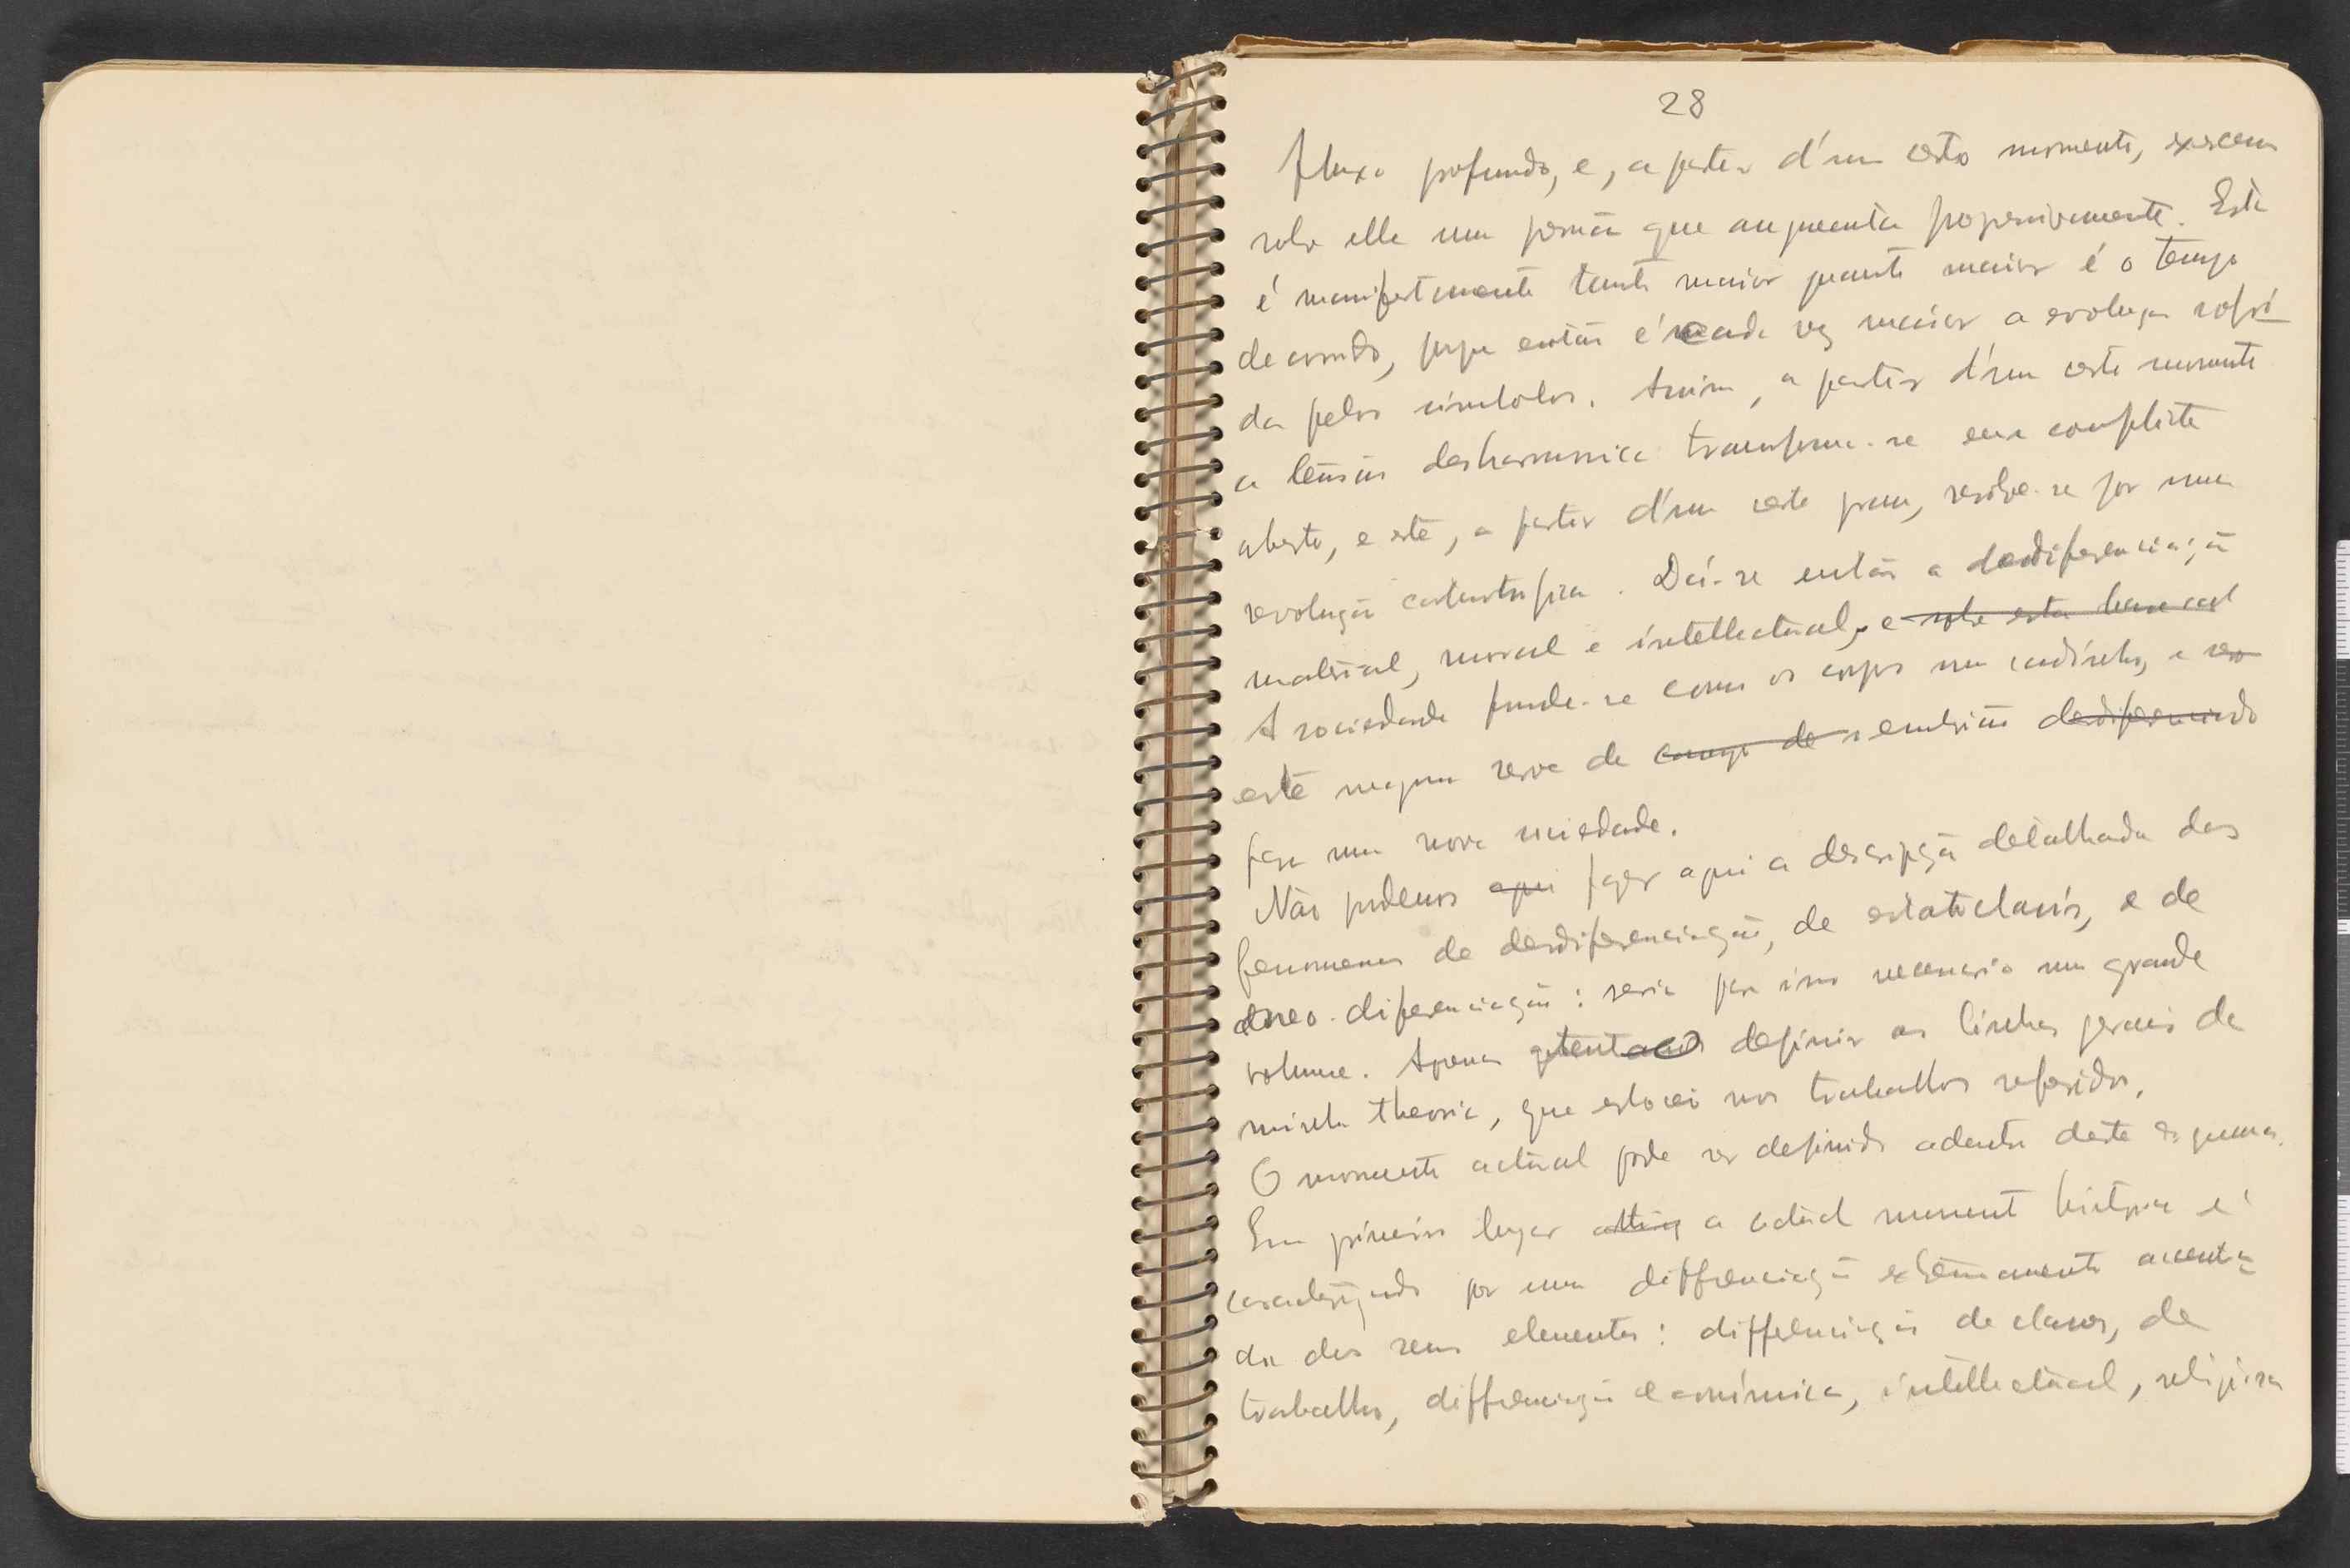 28
fluxo profundo, e, a partir d'um certo momento, exercem
sobre elle uma pressão que augmenta progressivamente. Esta
é manifestamente tanto maior quanto maior é o tempo
decorrido, porque então é cada vez maior a evolução sofri-
da pelos simbolos. Assim, a partir d'um certo momento
a tensão desharmonica transforma-se em conflicto
aberto, e este, a partir d'um certo grau, resolve-se por uma
revolução catastrofica. Dá-se então a desdiferenciação
material, moral e intellectual, e sobre esta base
A sociedade funde-se como os corpos num cadinho, e
este magma serve de campo de embrião desdiferenciado
para uma nova sociedade.
Não podemos aqui fazer aqui a descripção detalhada dos
fenomenos de desdiferenciação, de estatoclasis, e de
neo-diferenciação: seria para isso necessario um grande
volume. Apenas definir as linhas geraes da
minha theoria, que esbocei nos trabalhos referidos.
O momento actual pode ser definido adentro deste esquema.
Em primeiro lugar o actual momento historico é
caracterizado por uma differenciação extremamente accentua-
da dos seus elementos: differenciação de classes, de
trabalho, differenciação económica, intellectual, religiosa